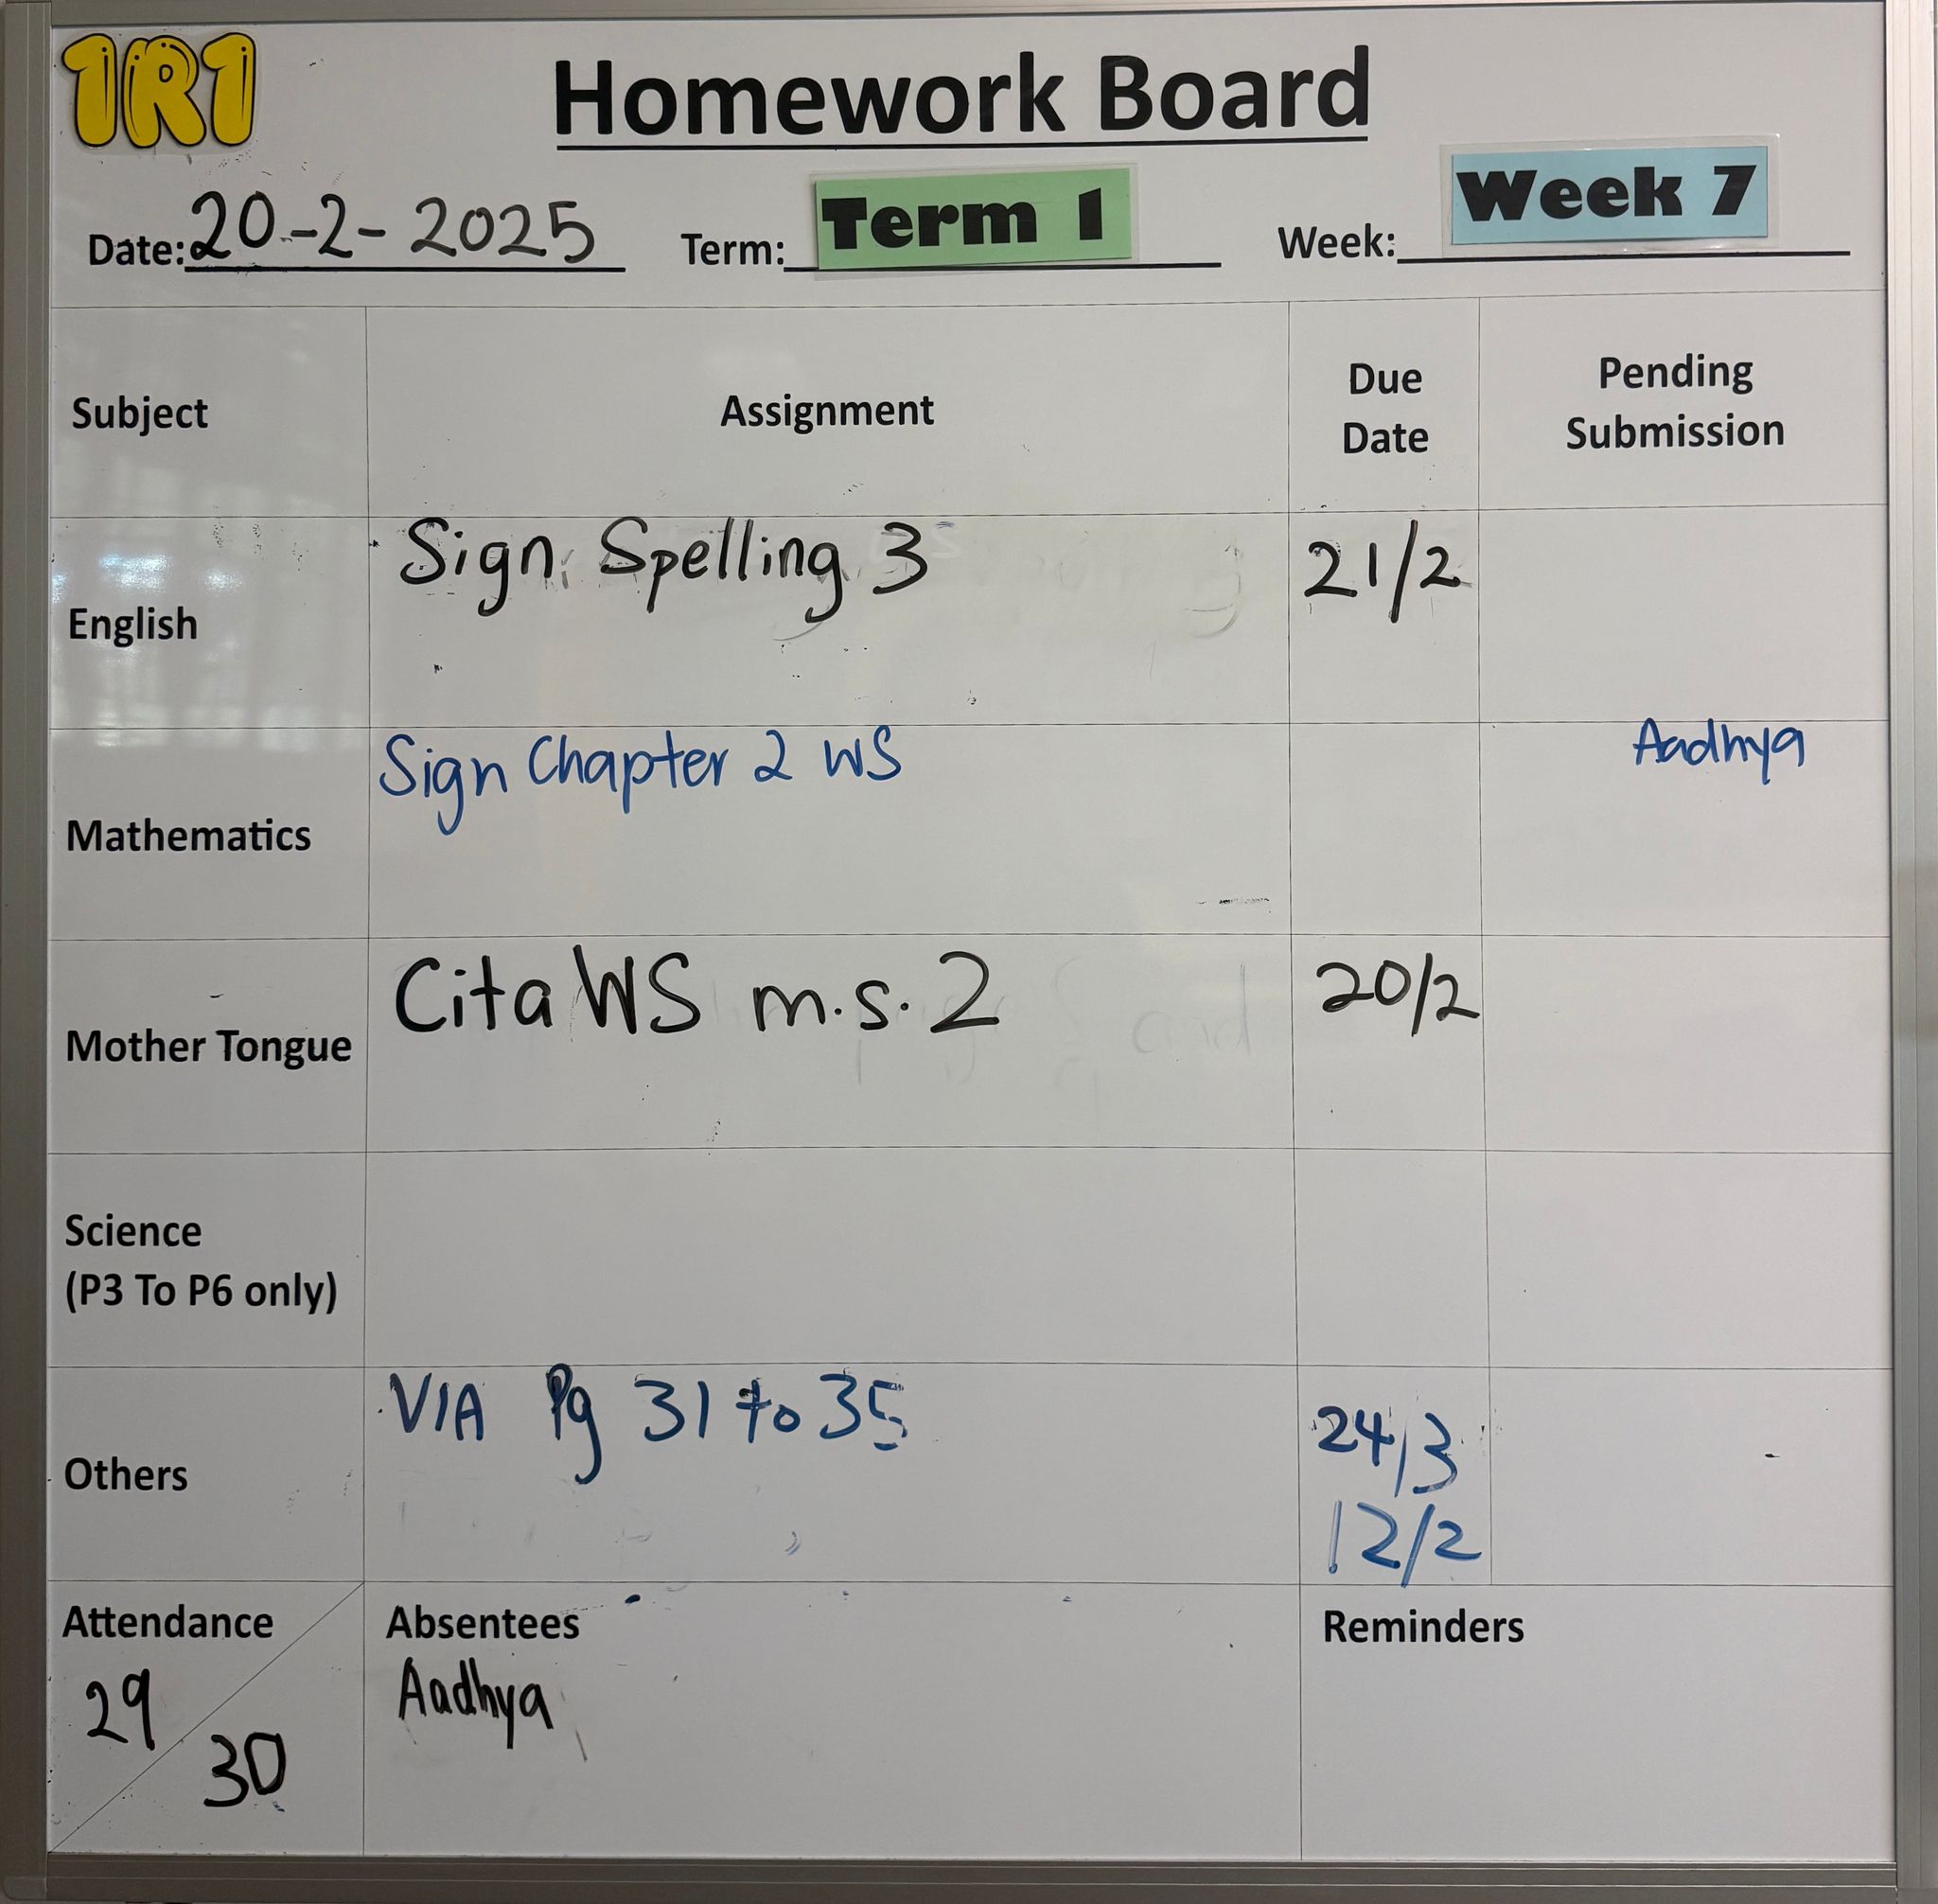 1R1
Homework Board
Date: 20-2-2025 Term: Term 1 Week: Week 7
Subject Assignment Due Date Pending Submission
English Sign Spelling 3 21/2
Mathematics Sign Chapter 2 WS Aadhya
Mother Tongue Cita WS m.s. 2 20/2
Science
(P3 To P6 only)
Others VIA Pg 31 to 35 24/3
12/2
Attendance Absentees Reminders
29 Aadhya
30